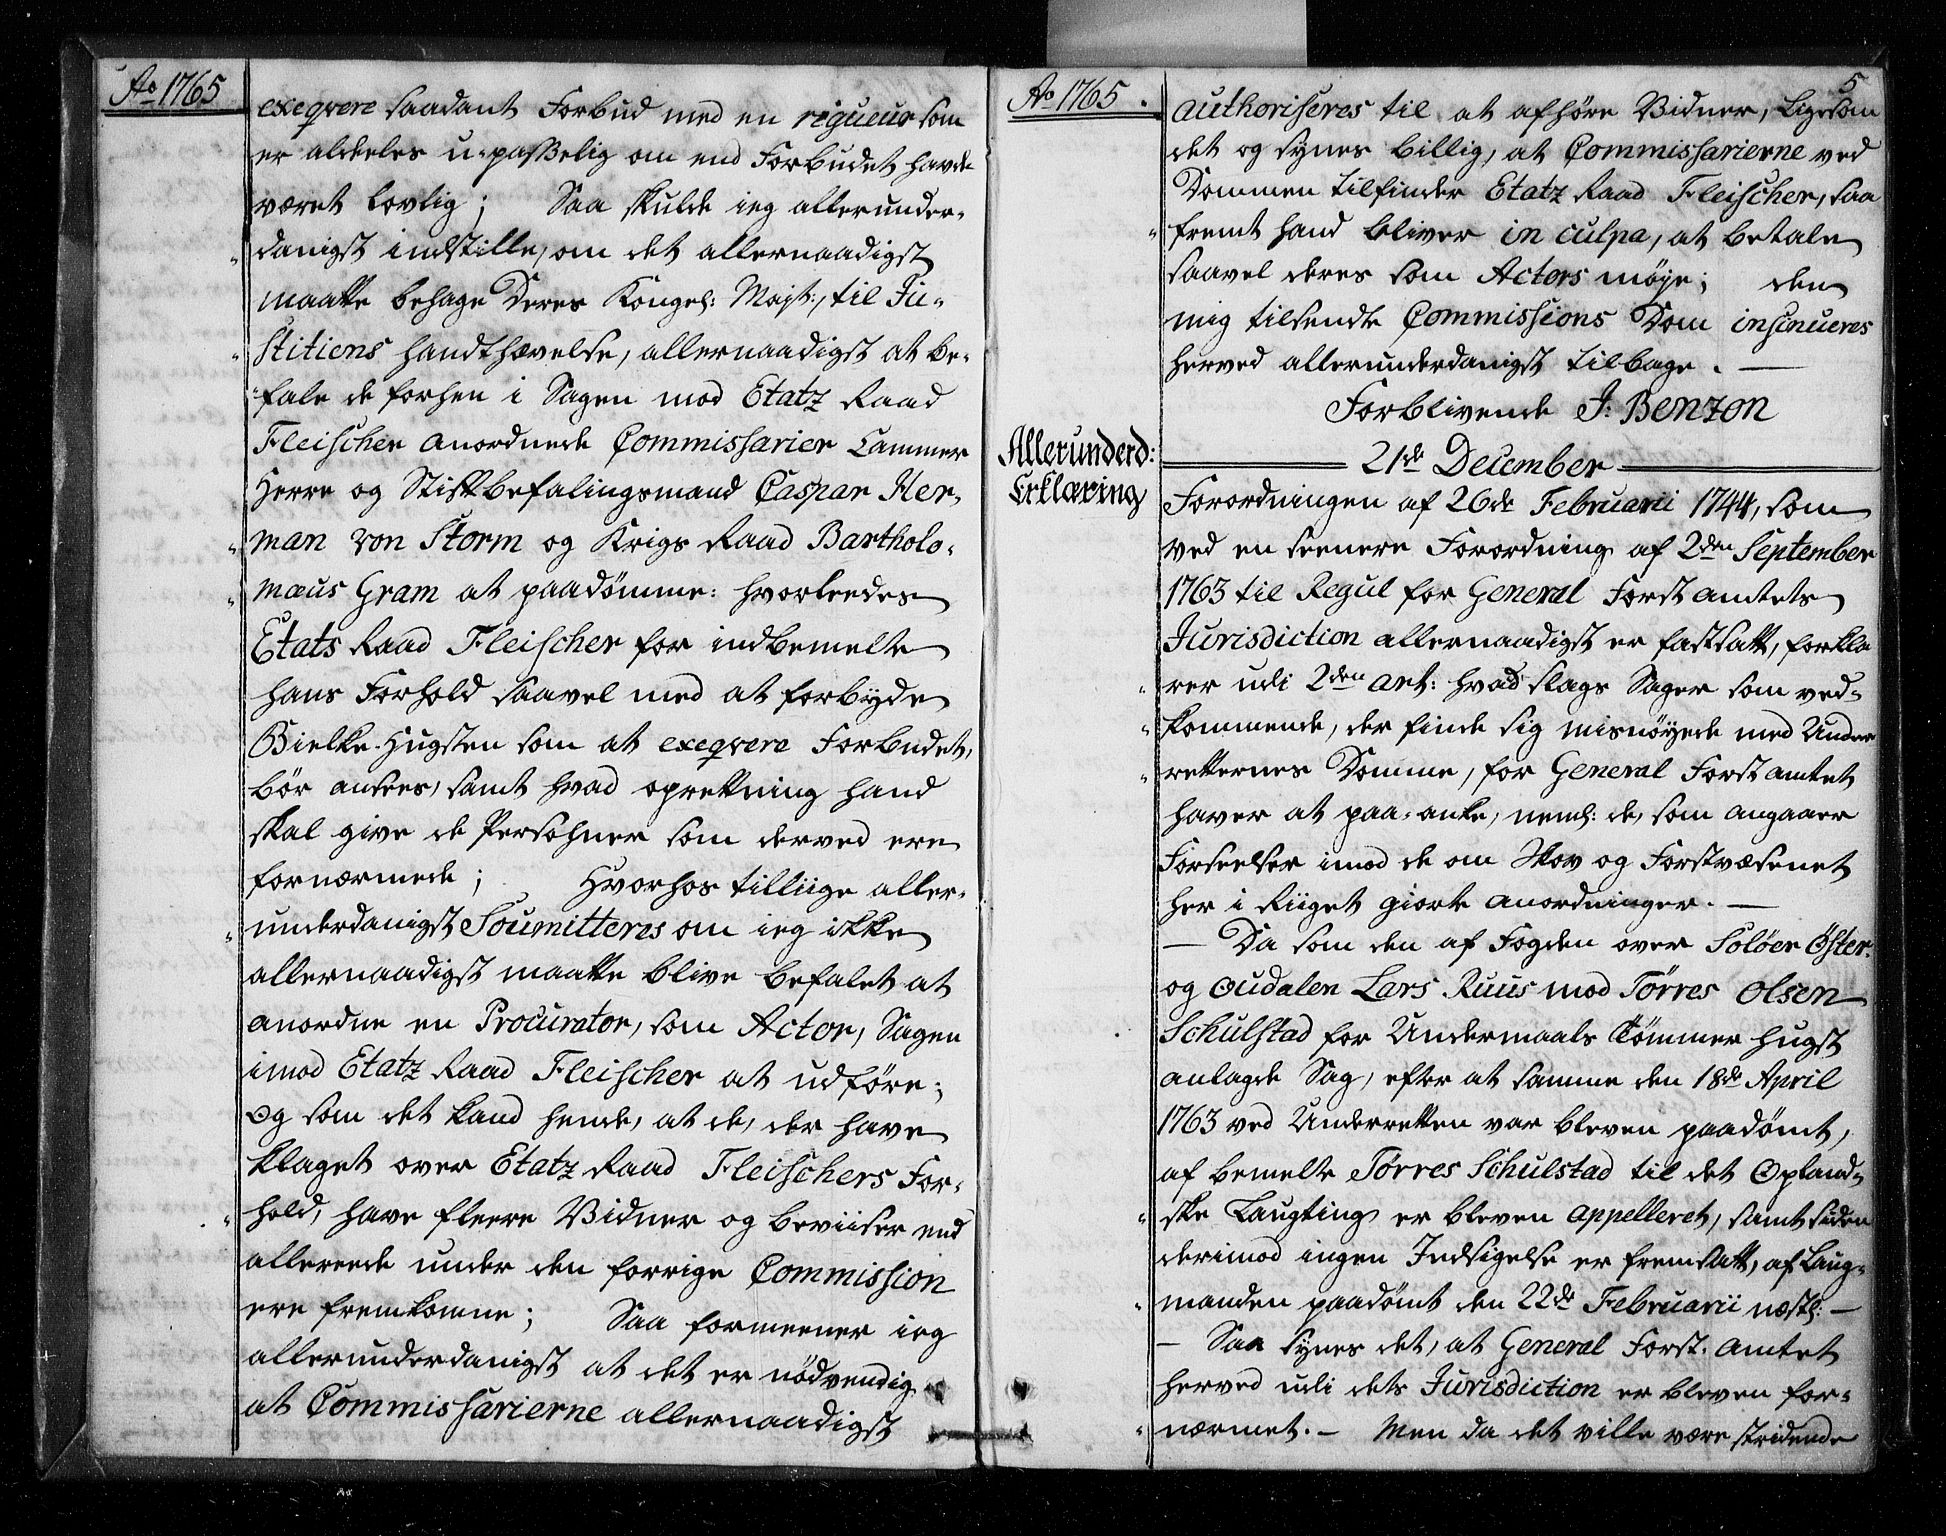 Ao 1765
exeqvere saadant Forbud med en rigueur som
er aldeles u-passelig om end Forbudet havde
været lovlig; Saa skulde ieg allerunder-
danigst indstille, om det allernaadigst
maatte behage Deres Kongel: Majst:, til Ju-
stitiens handthævelse, allernaadigst at be-
fale de forhen i Sagen mod Etatz Raad
Fleischer anordnede Commissarier Cammer
Herre og Stiftbefalingsmand Caspar Her-
man von Storm og Krigs Raad Bartholo-
mæus Gram at paadømme: hvorledes
Etats Raad Fleischer for indbemelte
hans Forhold saavel med at forbyde
Bielke-Hugsten som at exeqvere Forbudet,
bør ansees, samt hvad oprettning hand
skal give de Persohner som derved ere
fornærmede; Hvorhos tilliige aller-
underdanigst Soumitteres om ieg ikke
allernaadigst maatte blive befalet at
anordne en Procurator, som Actor, Sagen
imod Etatz Raad Fleischer at udføre;
Og som det kand hende, at de, der have
klaget over Etatz Raad Fleischers For-
hold, have fleere Vidner og beviiser end
allereede under den forrige Commission
ere fremkomne; Saa formeener ieg
allerunderdanigst at det er nødvendig
at Commissarierne allernaadigst
Ao 1765.
5
authoriseres til at afhøre Vidner, ligesom
det og synes billig, at Commissarierne ved
Dommen tilfinder Etatz Raad Fleischer, saa
fremt hand bliver in culpa, at betale
saavel deres som Actors møje; den
mig tilsendte Commissions Dom insinueres
herved allerunderdanigst tilbage.
Forblivende J: Benzon
21de December
Allerunderd:
Erklæring
Forordningen af 26de Februarii 1744, som
ved en seenere Forordning af 2den September
1763 til Regul for General Forst amtets
Jurisdiction allernaadigst er fastsatt, forkla
rer udi 2den art: hvad slags Sager som ved-
kommende, der finde sig misnøyede med Under
retternes Domme, for General Forst amtet
haver at paa-anke, neml: de, som angaaer
Forseelser imod de om Skov og Forstvæsenet
her i Riiget giorte anordninger. —
— Da som den af Fogden over Soløer Øster-
og Oudalen Lars Ruus mod Tørres Olsen
Schulstad for Undermaals Tømmer hugst
anlagde Sag, efter at samme den 18de April
1763 ved Underretten var bleven paadømt,
af bemelte Tørres Schulstad til det Opland-
ske Laugting er bleven appelleret, samt siden
derimod ingen Indsigelse er fremsatt, af Laug-
manden paadømt den 22de Februarii næstl: —
— Saa synes det, at General Forst-amtet
herved udi dets Jurisdiction er bleven for-
nærmet. — Men da det ville være stridende